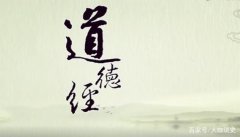 道
德
经
百家号/大咖说史